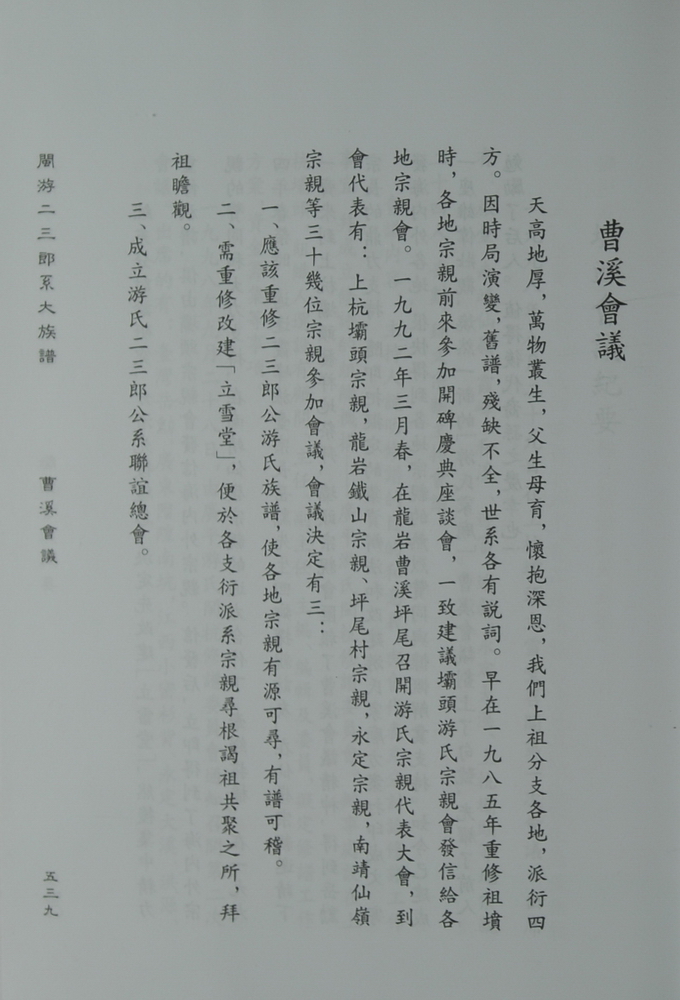 曹溪會議
天高地厚，萬物叢生，父生母育，懷抱深恩，我們上祖分支各地，派衍四
方。因時局演變，舊譜，殘缺不全，世系各有説詞。早在一九八五年重修祖墳
時，各地宗親前來參加開碑慶典座談會，一致建議壩頭游氏宗親會發信給各
地宗親會。一九九二年三月春，在龍岩曹溪坪尾召開游氏宗親代表大會，到
會代表有：上杭壩頭宗親，龍岩鐵山宗親、坪尾村宗親，永定宗親，南靖仙嶺
宗親等三十幾位宗親參加會議，會議決定有三：
一、應該重修二三郎公游氏族譜，使各地宗親有源可尋，有譜可稽。
二、需重修改建「立雪堂」，便於各支衍派系宗親尋根謁祖共聚之所，拜
祖瞻觀。
三、成立游氏二三郎公系聯誼總會。
閩游二三郎系大族譜
曹溪會議
五三九